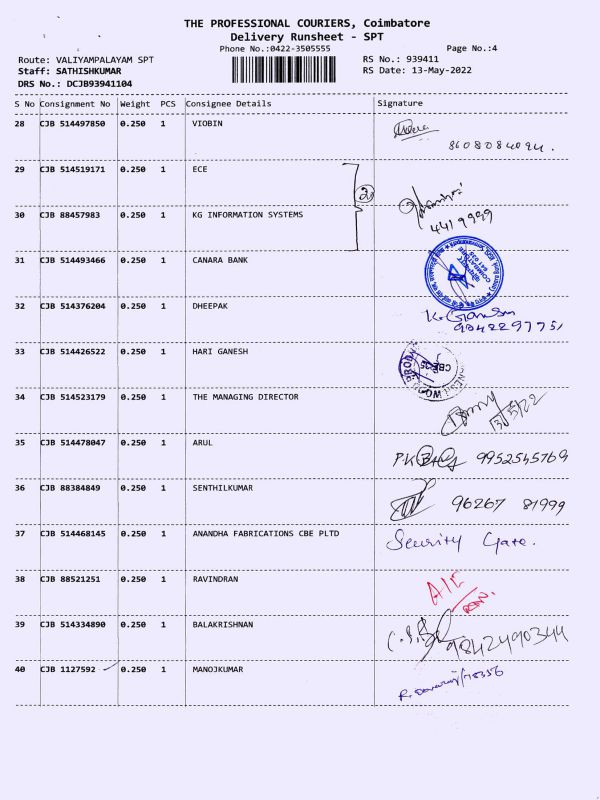 THE PROFESSIONAL COURIERS, Coimbatore
Delivery Runsheet - SPT
Phone No.:0422-3505555
Page No.:4
Route: VALIYAMPALAYAM SPT
RS No.: 939411
Staff: SATHISHKUMAR
RS Date: 13-May-2022
DRS No.: DCJB93941104
S No Consignment No Weight PCS Consignee Details Signature
28 CJB 514497850 0.250 1 VIOBIN
8608084094.
29 CJB 514519171 0.250 1 ECE
2
30 CJB 88457983 0.250 1 KG INFORMATION SYSTEMS
4419999
31 CJB 514493466 0.250 1 CANARA BANK
32 CJB 514376204 0.250 1 DHEEPAK
9842297751
33 CJB 514426522 0.250 1 HARI GANESH
CBE-35
34 CJB 514523179 0.250 1 THE MANAGING DIRECTOR
13/5/22
35 CJB 514478047 0.250 1 ARUL
9952545769
36 CJB 88384849 0.250 1 SENTHILKUMAR
96267 81999
37 CJB 514468145 0.250 1 ANANDHA FABRICATIONS CBE PLTD
Security Gate.
38 CJB 88521251 0.250 1 RAVINDRAN
39 CJB 514334890 0.250 1 BALAKRISHNAN
9842490344
40 CJB 1127592 0.250 1 MANOJKUMAR